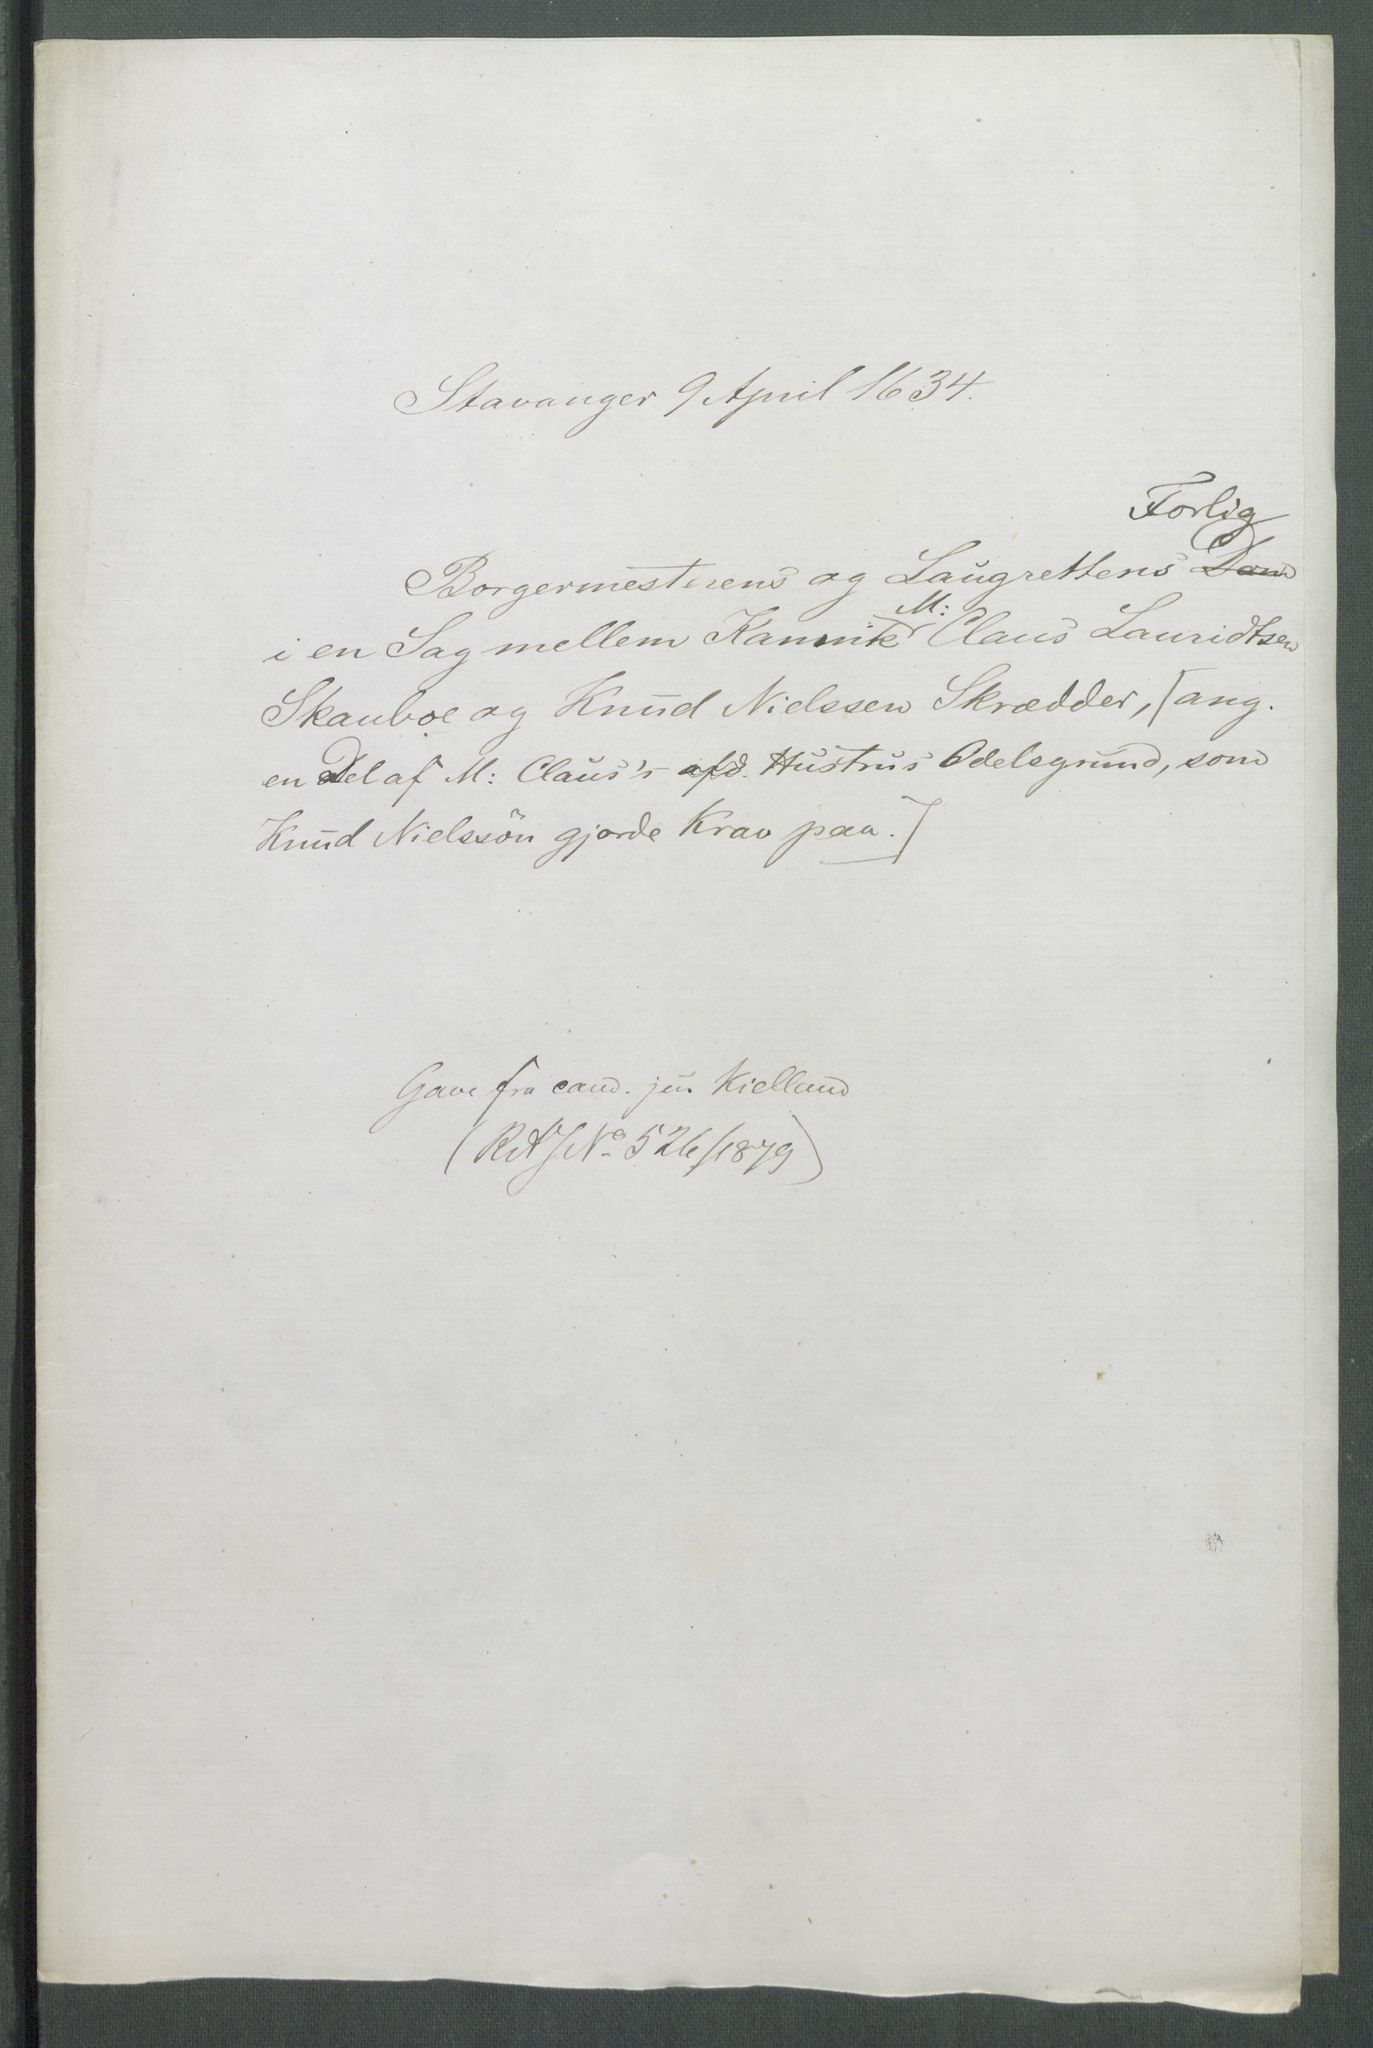 Stavanger 9 April 1634.
Forlig
Borgermesterens og Laugrettens Dom
M:
i en Sag mellem Kannik Claus Lauridtsen
Skauboe og Knud Nielssen Skrædder, [ang.
en Del af M: Claus's afd. Hustrus Odelsgrund, som
Knud Nielssön gjorde Krav paa.]
Gave fra cand. jur Kielland
(RA J No 526/1879)